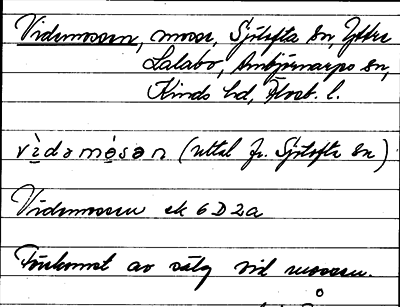 Videmossen, mosse, Sjötofta sn, Yttre
Lalabo, Ambjörnarps sn,
Kinds hd, Älvsb. l.
vìdəmòsən (uttal fr. Sjötofta sn)
Videmossen ek 6D2a
Förekomst av sälg vid mossen.